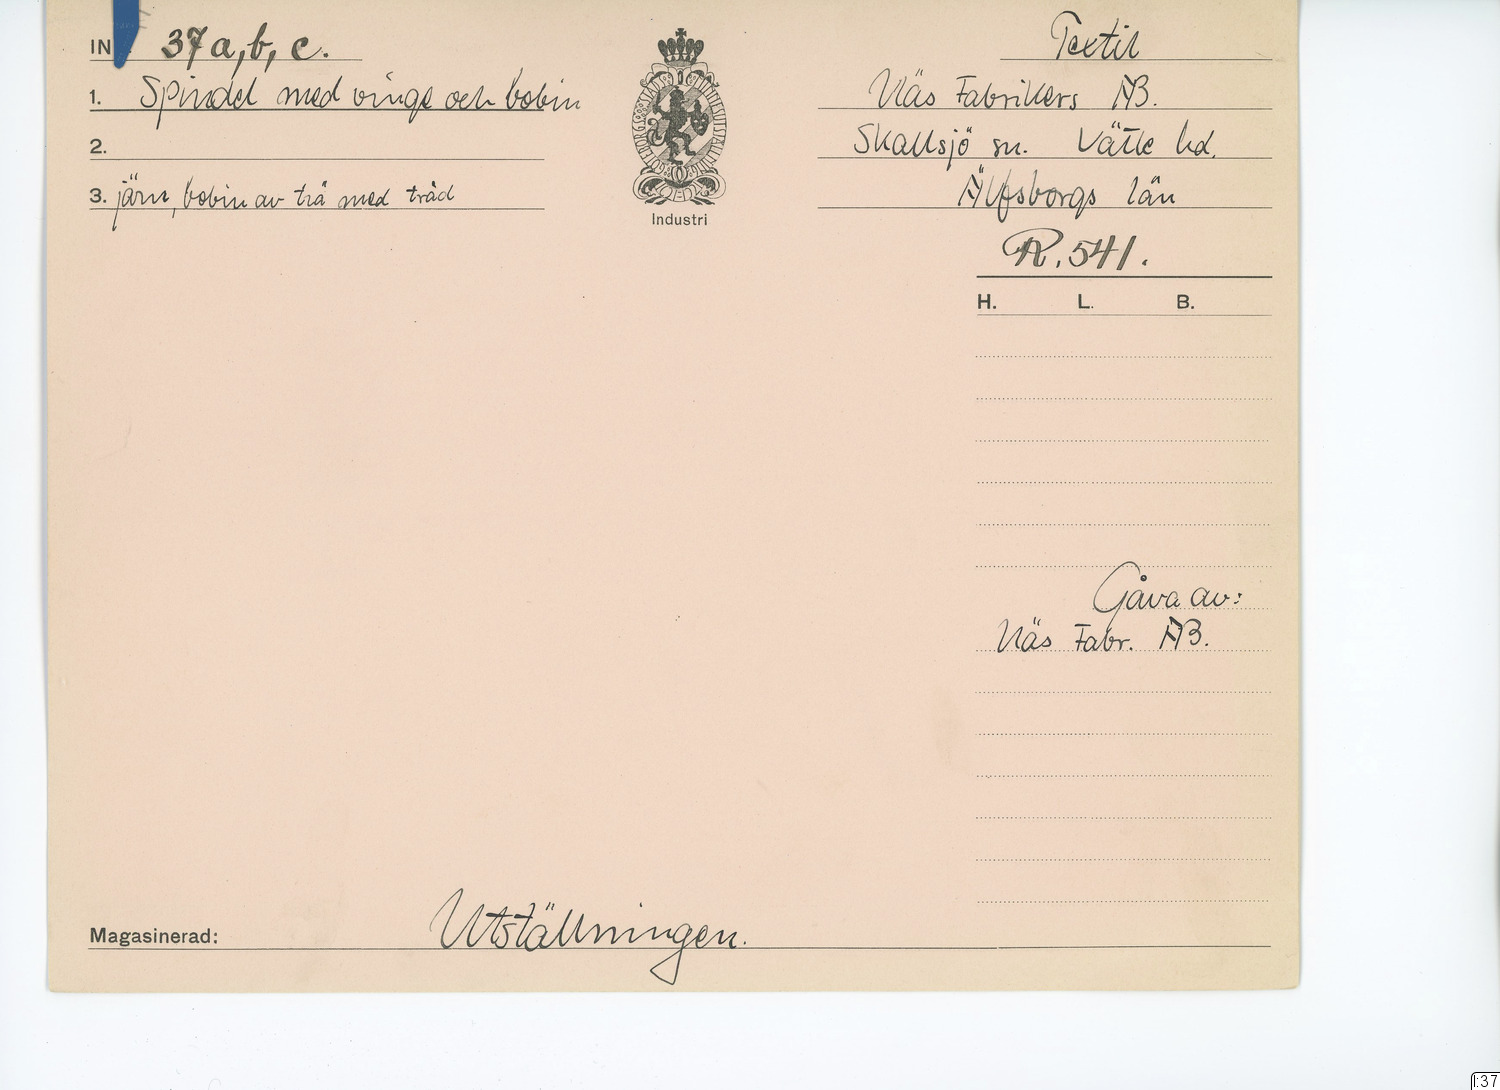 IN 37 a, b, c.
Textil
1. Spindel med vinge och bobin
Näs Fabrikers AB.
2.
Skallsjö sn. Vätle hd.
3. järn, bobin av trä med tråd
Älfsborgs län
Industri
R. 541.
H. L. B.
Gåva av:
Näs Fabr. AB.
Magasinerad: Utställningen.
I:37